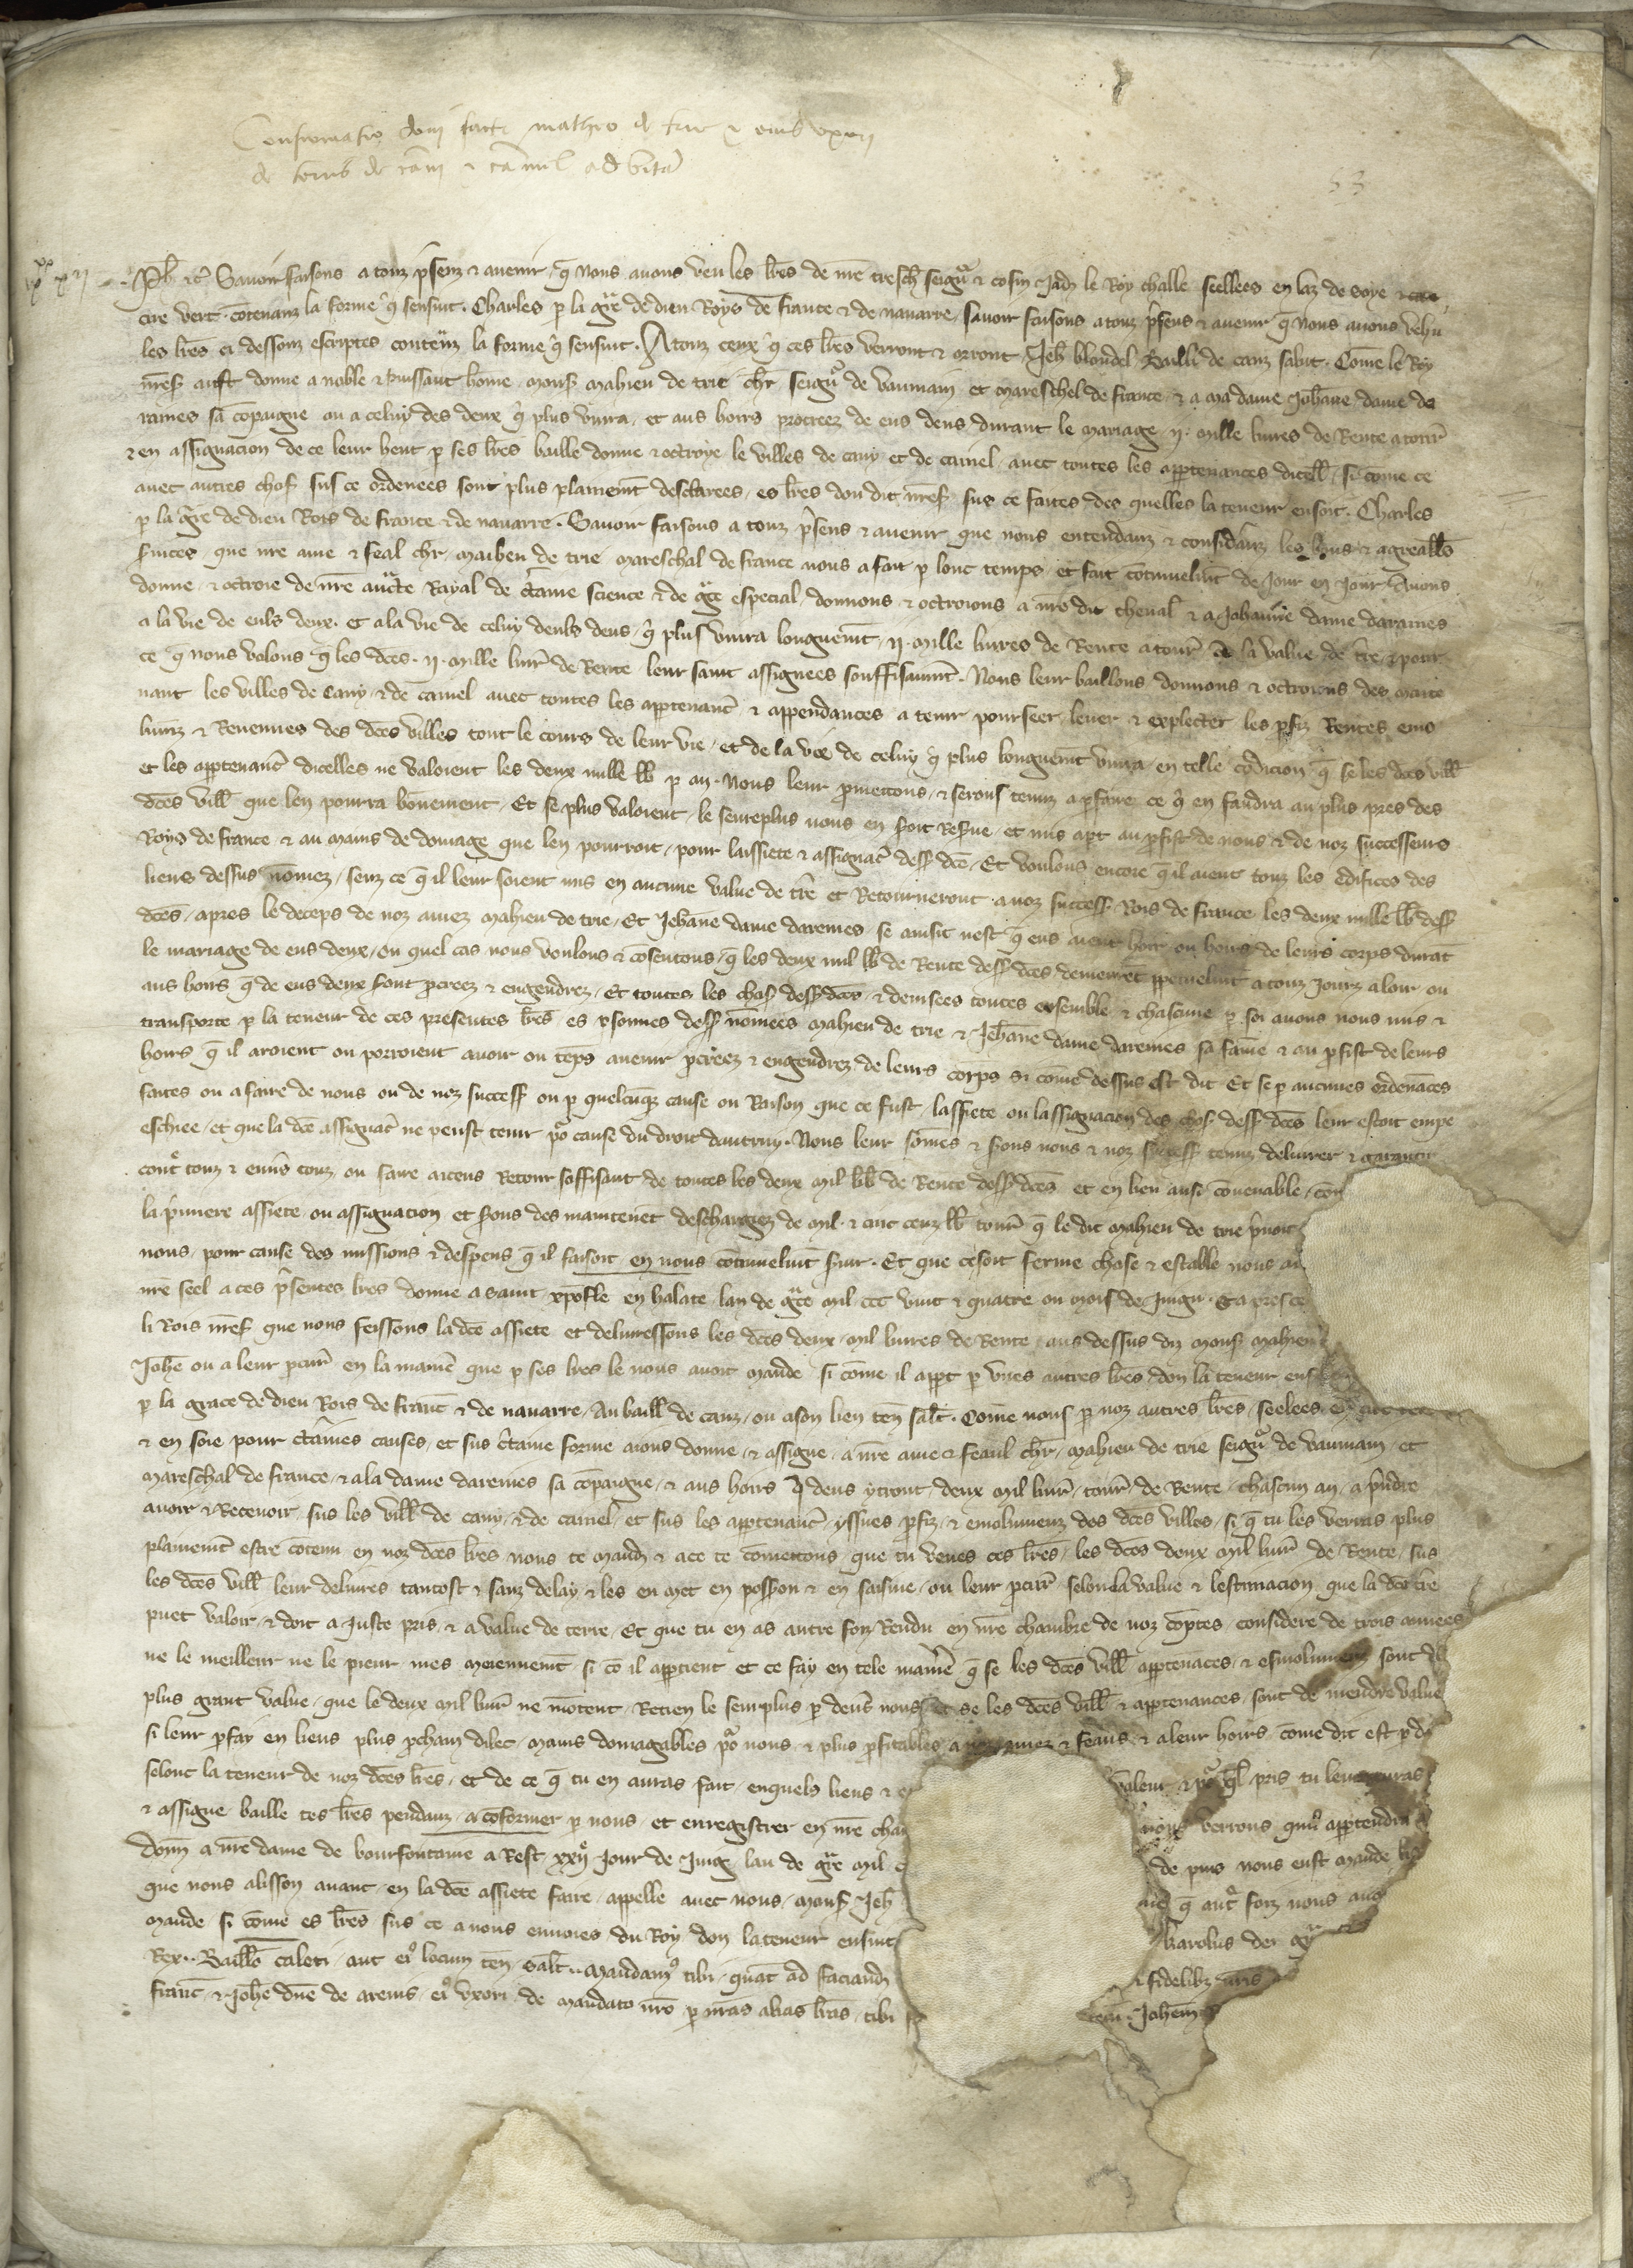 Confirmatio doni facti matheo de trie et eius uxori
de terris de cani et camel ad vitam
53
Ph. etc. Savoir faisons a touz presenz et avenir que Nous avons veu les lettres de nostre treschier seigneur et cosin Jadis le Roy challe seellees en laz de soye et
cire vert contenanz la forme qui sensuit. Charles par la grace de dieu Roys de france et de navarre savoir faisons a touz presens et avenir que Nous avons vehu
les lettres ci dessouz escriptes contenanz la forme qui sensuit. A touz ceux qui ces lettres verront et orront Jehan blondel Bailli de caux salut. Come le Roy
nostre sire aust donne a noble et puissant home monsr mahieu de trie chevalier seigneur de vaumain et mareschel de france et a ma dame Johanne dame da
raines sa compaigne ou a celuy des deux qui plus vivra et aus hoirs procreez de eus deus durant le mariage ii. mille livres de Rente a tournois
et en assignacion de ce leur heut par ses lettres baille donne et octroye le villes de cany et de caniel avec toutes les appartenances dicelles si come ce
avec autres choses sus ce ordenees sont plus plainement desclarees es lettres dou dit nostre sire sus ce faites des quelles la teneur ensuit. Charles
par la grace de dieu Rois de france et de navarre. Savoir faisons a touz presens et avenir que nous entendanz et consideranz les bons et agreables
services que nostre ame et feal chevalier maihieu de trie mareschal de france nous a fait par lonc temps et fait continuelment de jour en jour Avons
donne et octroie de nostre aucte Rayal de certaine science et de grace especial donnons et octroions a nostre dit chevalier et a Johanne dame daraines
a la vie de euls deux et a la vie de celuy deuls deus qui plus vivra longuement ii. mille livres de Rente a tournois a la value de terre et pour
ce que nous volons que les dictes ii. mille livres de Rente leur saint assignees souffisaument. Nous leur baillons donnons et octroions des mainte
nant les villes de Cany et de caniel avec toutes les appartenances et appendances a tenir pourseer lever et explecter les profiz Rentes emo
lumenz et Revenues des dictes villes tout le cours de leur vie et de la vie de celuy qui plus longuement vivra en telle condicion que se les dictes villes
et les appartenances dicelles ne valoient les deux mille livres par an. Nous leur promettons et serons tenuz a parfaire ce qui en faudra au plus pres des
dictes villes que len pourra bonement. Et se plus valoient le seureplus nous en soit Reserve et mis a part au profist de nous et de noz successeurs
Roys de france et au mains de domage que len pourroit pour lassiete et assignacion dessus dicte. Et voulons encore que il aient touz les edifices des
lieus dessus nommez senz ce que il leur soient mis en aucune value de terre et Retourneront a noz successeurs Rois de france les deux mille livres dessus
dictes apres le deceps de noz amez mahieu de trie et Jehanne dame daremes se ainsit nest que eus aient hoir ou hoirs de leurs corps durant
le mariage de eus deux ou quel cas nous voulons et consentons que les deux mil livres de Rente dessus dictes demeurent perpetuelment a touz jourz a loir ou
aus hoirs qui de eus deux sont procreez et engendrez. Et toutes les choses dessus dictes et devisees toutes ensemble et chascune par soi avons nous mis et
transporte par la teneur de ces presentes lettres es personnes dessus nommees mahieu de trie et Jehanne dame daremes sa fame et au profist de leurs
hoirs que il aroient ou porroient avoir ou temps avenir procreez et engendrez de leurs corps si come dessus est dit Et se par aucunes ordenances
faites ou a faire de nous ou de noz successeurs ou par quelcunque cause ou Raison que ce fust lassiete ou lassignacion des choses dessus dictes leur estoit empe
eschiee et que la dicte assignacion ne peust tenir pour cause du droit dautruy. Nous leur sommes et serons nous et noz successeurs tenuz delivrer et garantir
contre touz et envers touz ou faire aceus Retour soffisant de toutes les deux mil livres de Rente dessus dictes et en lieu ausi convenable con
la premiere assiete ou assignacion et serons des maintenent deschargez de mil et cinc cenz livres tournois que le dit mahieu de trie prenoit
nous pour cause des missions et despens que il faisoit en nous continuelment servir. Et que ce soit ferme chose et estable nous av
nostre seel a ces presentes lettres donne a saint xpofle en halate lan de grace mil ccc vint et quatre ou mois de Juing. Et apres ce
li Rois nostre sire que nous feissons la dicte assiete et delivressons les dictes deux mil livres de Rente aus dessus diz monsr mahieu
Johanne ou a leur procureur en la maniere que par ses lettres le nous avoit mande si come il appert par unes autres lettres don la teneur ens
par la grace de dieu Rois de france et de navarre Au bailli de caux ou a son lieu tenant salut. Come nous par noz autres lettres seelees
et en soie pour certaines causes et sus certaine forme aions donne et assigne a nostre ame et feaul chevalier mahieu de trie seigneur de vaumain et
mareschal de france et a la dame daremes sa compaigne et aus hoirs qui deus ytront deux mil livres tournois de Rente chascun an a prendre
avoir et Recevoir sus les villes de cany et de caniel et sus les appartenances yssues profiz et emolumenz des dictes villes si que tu les verras plus
plainement estre contenu en noz dictes lettres nous te mandons et a ce te commettons que tu veues ces lettres les dictes deux mil livres de Rente sus
les dictes villes leur delivres tantost et sanz delay et les en met en possession et en saisine ou leur procureur selon la value et lestimacion que la dicte terre
puet valoir et doit a Juste pris et a value de terre Et que tu en as autre foiz Rendu en nostre chambre de noz comptes considere de trois annees
ne le meilleur ne le pieur mes meiennement si com il appartient et ce fay en tele maniere que se les dictes villes appartenances et esmolumenz sont de
plus grant value que le deux mil livres ne montent Retien le seurplus par devers nous et se les dictes villes et appartenances sont de mendre value
si leur parfay en lieus plus prochains dilec mains domagables pour nous et plus profitables a noz amez et feaus et a leur hoirs come dit est par
selonc la teneur de noz dictes lettres et de ce que tu en auras fait enquels lieus et e valeur et pour quel pris tu leur auras
et assigne baille tes lettres pendanz a confermer par nous et enregistrer en nostre cha nous verrons quil appartendra
donne a nostre dame de bourfontaine a Rest xxii jour de Juig lan de grace mil c de puis nous eust mande
que nous alisson avant en la dicte assiete faire appelle avec nous monsr Jeh que autre foiz nous avo
mande si come es lettres sus ce a nous envoies du Roy don la teneur ensuit karolus dei gra
Rex Baillivo caleti aut eius locum tenenti salutem. mandamus tibi quat ad faciand et fidelibus nostris
franc et Johanne domine de arenis eius uxori de mandato nostro per nostras alias litteras tibi Johannem